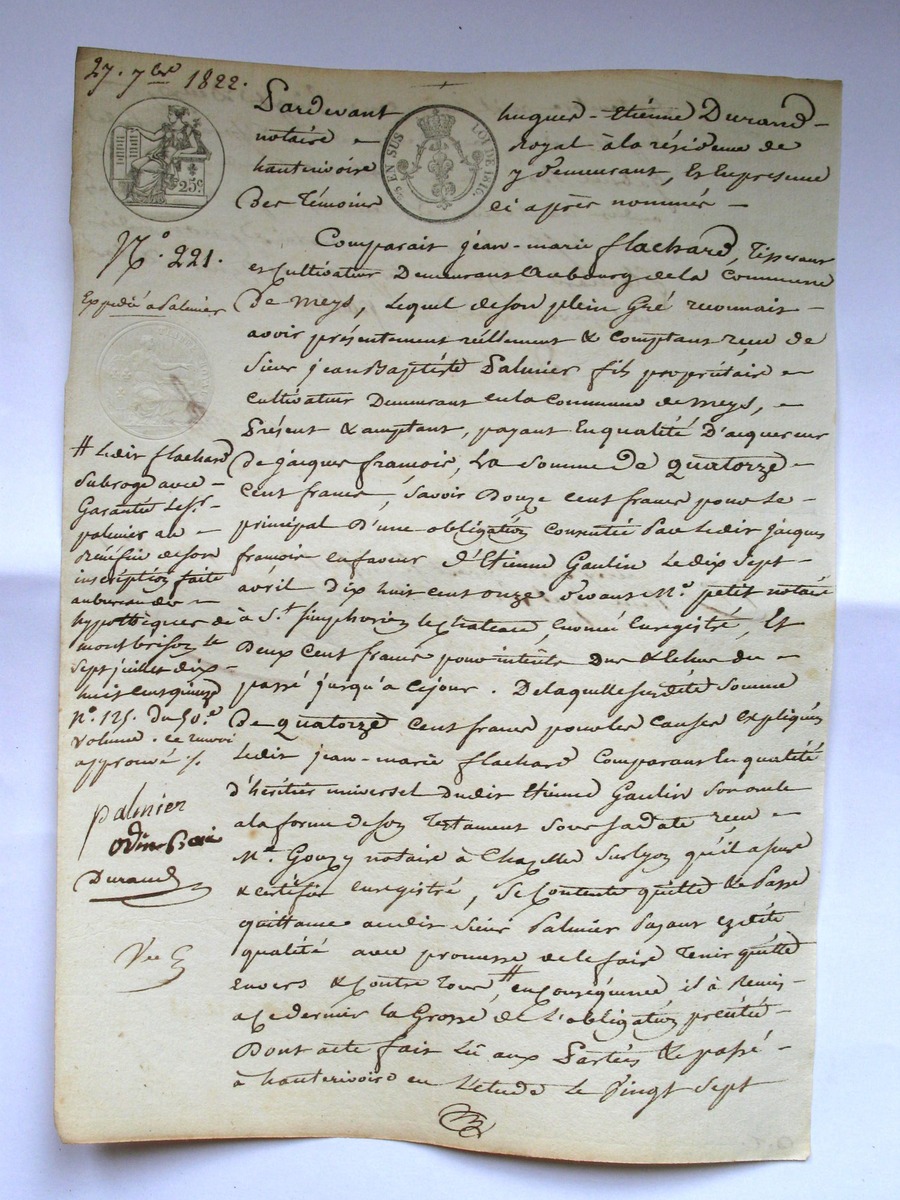 27. 7bre 1822.
25c
C. EN SUS LOI DE 1816.
Pardevant hugues-Etiénne Durand-
notaire - Royal à la résidence de
hauterivoire y demeurant, Et En presence
Des Témoins ci après nommés -
N.° 221.
Expédié à Palmier
Comparait jéan-marie flachard, Tisserant
et Cultivateur Demeurant au bourg de la Commune
De meys, Lequel de son plein Gré reconnait-
avoir présentement réellement & Comptant reçu de
Sieur jean Baptiste Palmier fils propriétaire -
Cultivateur Demeurant en la Commune de meys, -
Présent & acceptant, payant En qualité D'acquereur
de jacques françois, La Somme De quatorze -
Cent francs, Savoir Douze cent francs pour Le -
principal D'une obligation Consentie Par Ledit jacques
françois en faveur d'Etienne Gaulin Le dix Sept -
avril dix huit cent onze devant M.e petit notaire
à S.t Simphorien le chateau, Enonné Enregistré, Et
Deux Cent francs pour intérêts Dus & Echus du -
passé jusqu'à ce jour. De laquelle susdite Somme
De quatorze Cent francs pour les Causes Expliquées
Ledit jean-marie flachard Comparant En qualité
d'héritier universel dudit Etienne Gaulin Son oncle
a la forme de son Testament Sous sa date reçu -
M.e Gouzy notaire à Chazelle Sur Lyon qu'il assure
& certifie enregistré, Se Contente quitte & Passe
quittance audit Sieur Palmier Payant Esdite
qualité avec promesse de le faire Tenir quitte
Envers & Contre Tous #, en Conséquence il à Remis-
a ce dernier la Grosse de L'obligation précitée -
Dont acte fait Lû aux Parties & passé -
à hauterivoire en L'étude Le Vingt Sept
# Ledit flachard
Subroge avec
Garantie Led.s.r
palmier au -
bénéfice de son
inscription faite
au bureau des -
hypothèques de
montbrison le
Sept juillet dix-
huit cent quinze
N.° 125. Du 50.e
Volume. Ce renvoi
approuvé %.
palmier
Durand